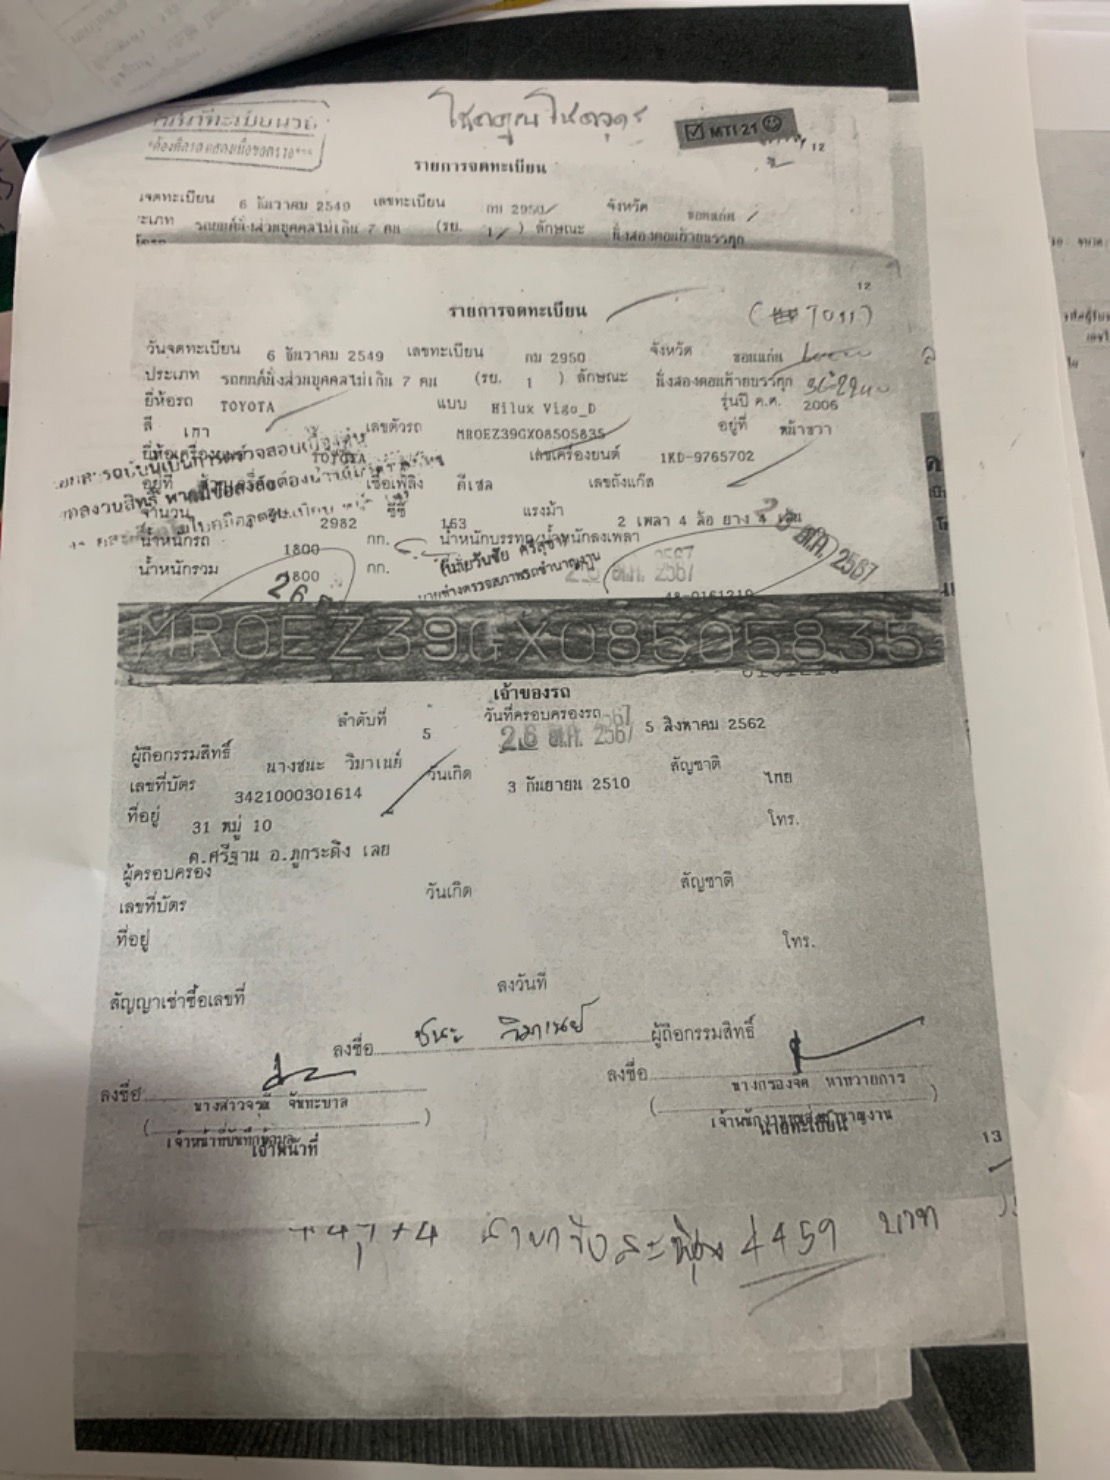 MTI 21
12
รายการจดทะเบียน
จดทะเบียน 6 ธันวาคม 2549 เลขทะเบียน กม 2950 จังหวัด ขอนแก่น
ประเภท รถยนต์นั่งส่วนบุคคลไม่เกิน 7 คน (รย. 1 ) ลักษณะ นั่งสองตอนท้ายบรรทุก
12
รายการจดทะเบียน
วันจดทะเบียน 6 ธันวาคม 2549 เลขทะเบียน กม 2950 จังหวัด ขอนแก่น
ประเภท รถยนต์นั่งส่วนบุคคลไม่เกิน 7 คน (รย. 1 ) ลักษณะ นั่งสองตอนท้ายบรรทุก
ยี่ห้อรถ TOYOTA แบบ Hilux Vigo_D รุ่นปี ค.ศ. 2006
สี เทา เลขตัวรถ MR0EZ39GX08505835 อยู่ที่ หน้าขวา
ยี่ห้อเครื่องยนต์ TOYOTA เลขเครื่องยนต์ 1KD-9765702
อยู่ที่ เชื้อเพลิง ดีเซล เลขถังแก๊ส
จำนวน 2982 ซีซี 163 แรงม้า 2 เพลา 4 ล้อ ยาง 4 เส้น
น้ำหนักรถ 1800 กก. น้ำหนักบรรทุก/น้ำหนักลงเพลา
น้ำหนักรวม 1800 กก.
26 พ.ค. 2567
MR0EZ39GX08505835
เจ้าของรถ
ลำดับที่ 5 วันที่ครอบครองรถ 5 สิงหาคม 2562
26 พ.ค. 2567
ผู้ถือกรรมสิทธิ์ นางชนะ วิมาเนย์
เลขที่บัตร 3421000301614 วันเกิด 3 กันยายน 2510 สัญชาติ ไทย
ที่อยู่ 31 หมู่ 10 โทร.
ต.ศรีฐาน อ.ภูกระดึง เลย
ผู้ครอบครอง
เลขที่บัตร วันเกิด สัญชาติ
ที่อยู่ โทร.
สัญญาเช่าซื้อเลขที่ ลงวันที่
ลงชื่อ ชนะ วิมาเนย์ ผู้ถือกรรมสิทธิ์
ลงชื่อ ลงชื่อ
นางสาวจรุณี จันทะบาล
เจ้าหน้าที่บันทึกข้อมูล
เจ้าหน้าที่ นายทะเบียน
13
4459 บาท